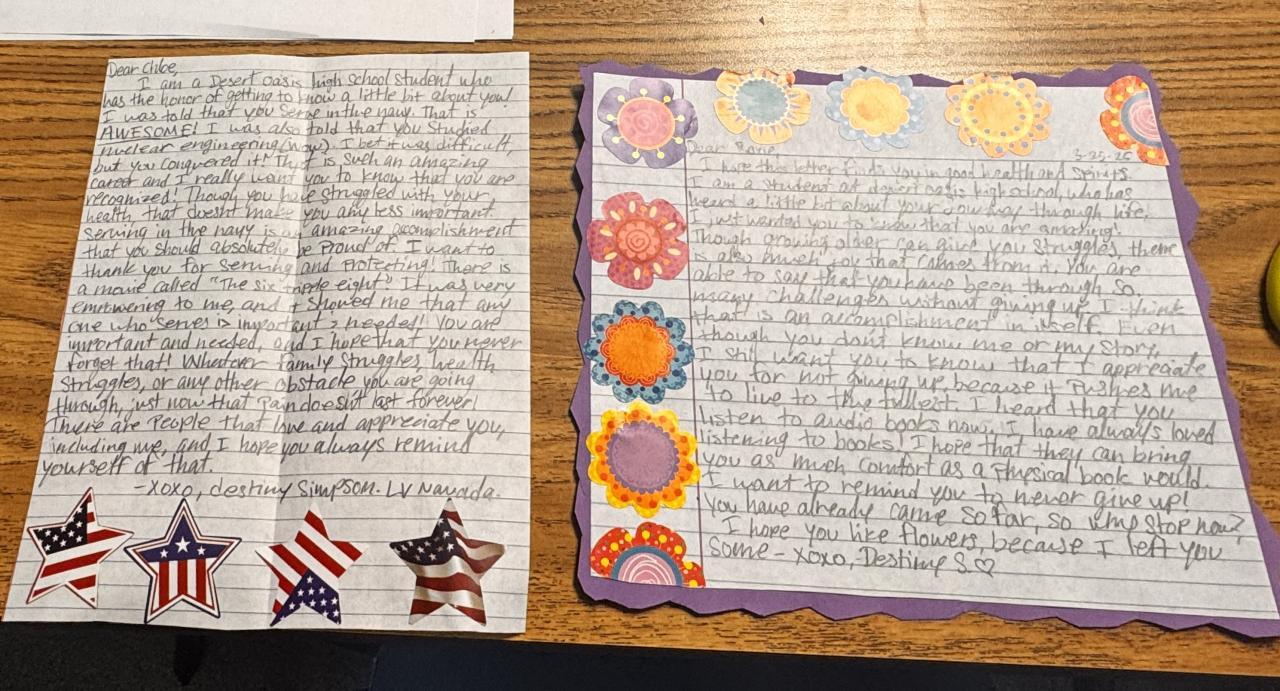 Dear Chloe,
I am a Desert Oasis high School Student who
has the honor of getting to know a little bit about you!
I was told that you serve in the navy. That is
AWESOME! I was also told that you Studied
nuclear engineering (wow). I bet it was difficult,
but you conquered it! That is such an amazing
career and I really want you to know that you are
recognized! Though you have struggled with your
health that doesnt make you any less important.
Serving in the navy is an amazing accomplishment
that you should absolutely be Proud of. I want to
thank you for serving and Protecting! There is
a movie called "The six tripple eight" It was very
empowering to me, and it showed me that any
one who serves is important & needed! You are
important and needed, and I hope that you never
forget that! Whatever family struggles, health
struggles, or any other obstacle you are going
through, just now that Pain doesn't last forever!
There are People that love and appreciate you,
including me, and I hope you always remind
yourself of that.
-xoxo, destiny Simpson. LV Navada.
Dear
3-25-25
I hope this letter finds you in good health and spirits.
I am a student at desert oasis high school, who has
heard a little bit about your Journey through life.
I just wanted you to know that you are amazing!
Though growing older can give you struggles, there
is also much joy that comes from it. You are
able to say that you have been through so
many challenges without giving up. I think
that is an accomplishment in itself. Even
though you don't know me or my story,
I still want you to know that I appreciate
you for not giving up because it Pushes me
to live to the fullest. I heard that you
listen to audio books now. I have always loved
listening to books! I hope that they can bring
you as much comfort as a Physical book would.
I want to remind you to never give up!
You have already came so far, so why stop now?
I hope you like flowers, because I left you
some - xoxo, -Destiny S.♡